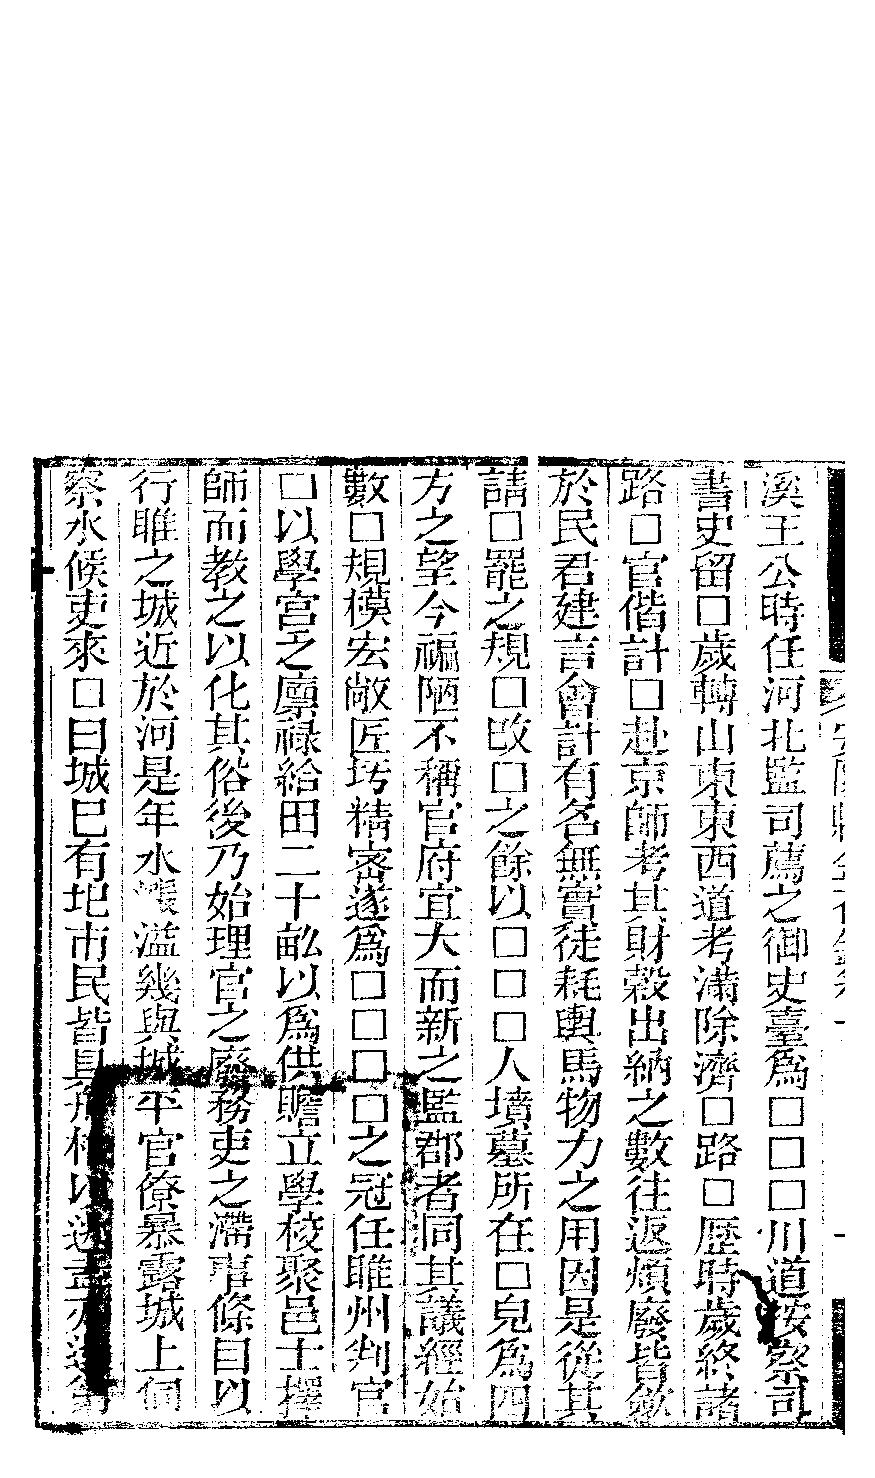 溪王公時任河北監司薦之御史臺爲□□□川道按察司
書史留□歲轉山東東西道考滿除濟□路□歷時歲終諸
路□官偕計□赴京師考其財穀出納之數往返煩廢皆斂
於民君建言會計有名無實徒耗輿馬物力之用因是從其
請□罷之規□改□之餘以□□□人墳墓所在□皃爲四
方之望今褊陋不稱官府宜大而新之監郡者同其議經始
數□規模宏敞匠圬精密遂爲□□□□之冠任睢州判官
□以學宮之廩祿給田二十畝以爲供贍立學校聚邑士擇
師而教之以化其俗後乃始理官之廢務吏之滯事條目以
行睢之城近於河是年水漲溢幾與城平官僚暴露城上伺
察水候吏來□曰城巳有圯市民皆具舟以
安陽縣金石錄卷